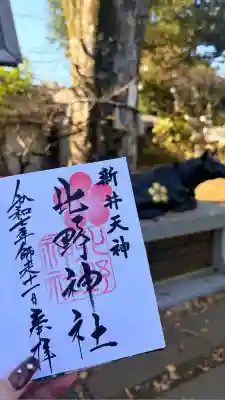 新井天神
北野神社
令和七年師走十一日奉拝